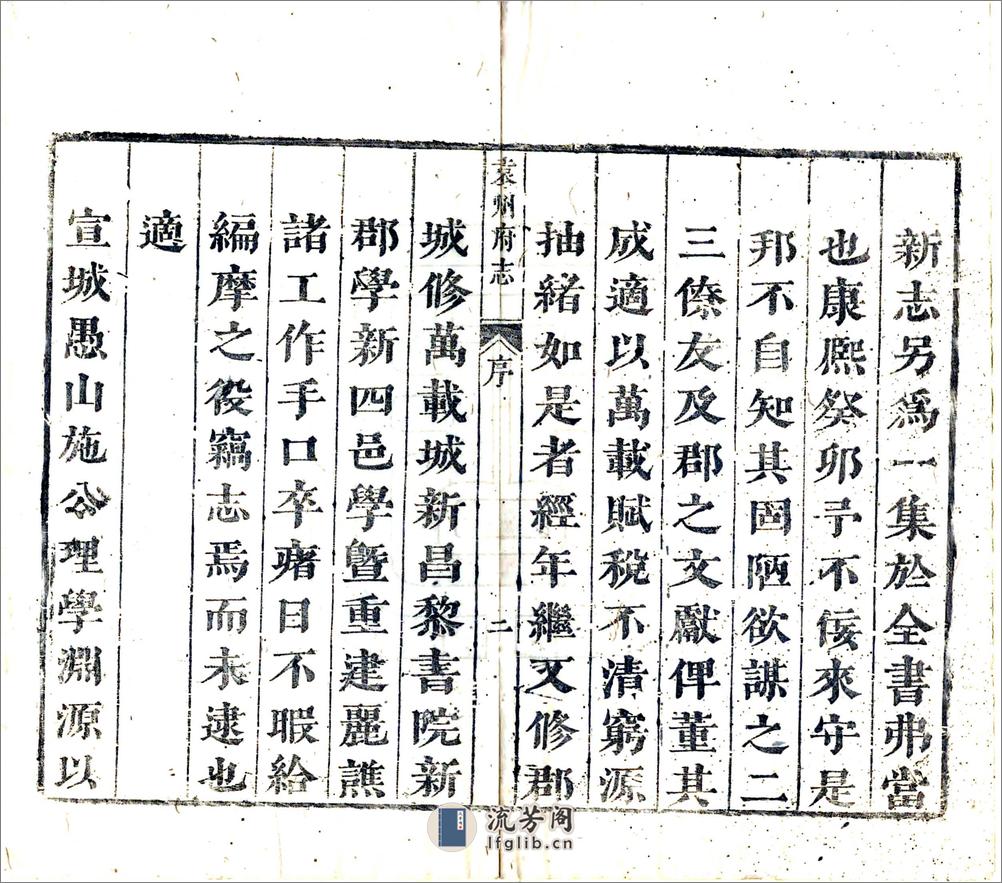 新志另爲一集於全書弗當
也康熈癸卯予不佞來守是
邦不自知其固陋欲謀之二
三僚友及郡之文獻俾董其
成適以萬載賦稅不清窮源
抽緒如是者經年繼又修郡
袁州府志 序 二
城修萬載城新昌黎書院新
郡學新四邑學曁重建麗譙
諸工作手口卒瘏目不暇給
編摩之役竊志焉而未逮也
適
宣城愚山施公理學淵源以
流芳阁
lfglib.cn